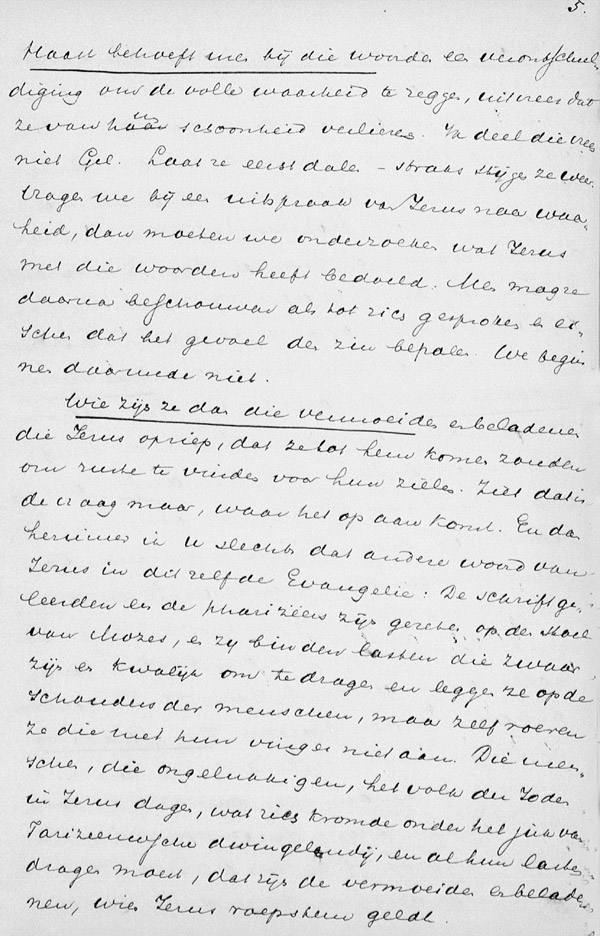 5.
Haast behoeft men bij die woorden een verontschul-
diging om de volle waarheid te zeggen, uit vrees dat
ze van haar schoonheid verliezen. Ik deel die vrees
niet Gel. Laat ze eerst dalen - straks stijgen ze weer.
Vragen we bij een uitspraak van Jezus naar waar-
heid, dan moeten we onderzoeken wat Jezus
met die woorden heeft bedoeld. Men mag ze
daarna beschouwen als tot zich gesproken en ei-
schen dat het gevoel den zin bepalen. We begin
nen daarmede niet.
Wie zijn ze dan die vermoeiden en beladenen
die Jezus opriep, dat ze tot hem komen zouden
om ruste te vinden voor hun zielen. Ziet dat is
de vraag maar, waar het op aan komt. En dan
herinner ik u slechts dat andere woord van
Jezus in ditzelfde Evangelie: De schriftge-
leerden en de pharizëers zijn gezeten op den stoel
van Mozes, en zij binden lasten die zwaar
zijn en kwalijk om te dragen en leggen ze op de
schouders der menschen, maar zelf roeren
ze die met hun vinger niet aan. Die men-
schen, die ongelukkigen, het volk der Joden
in Jezus dagen, wat zich kromde onder het juk van
Farizeeuwsche dwingelandij, en al hun lasten
dragen moest, dat zijn de vermoeiden en belade
nen, wien Jezus roepstem geldt.